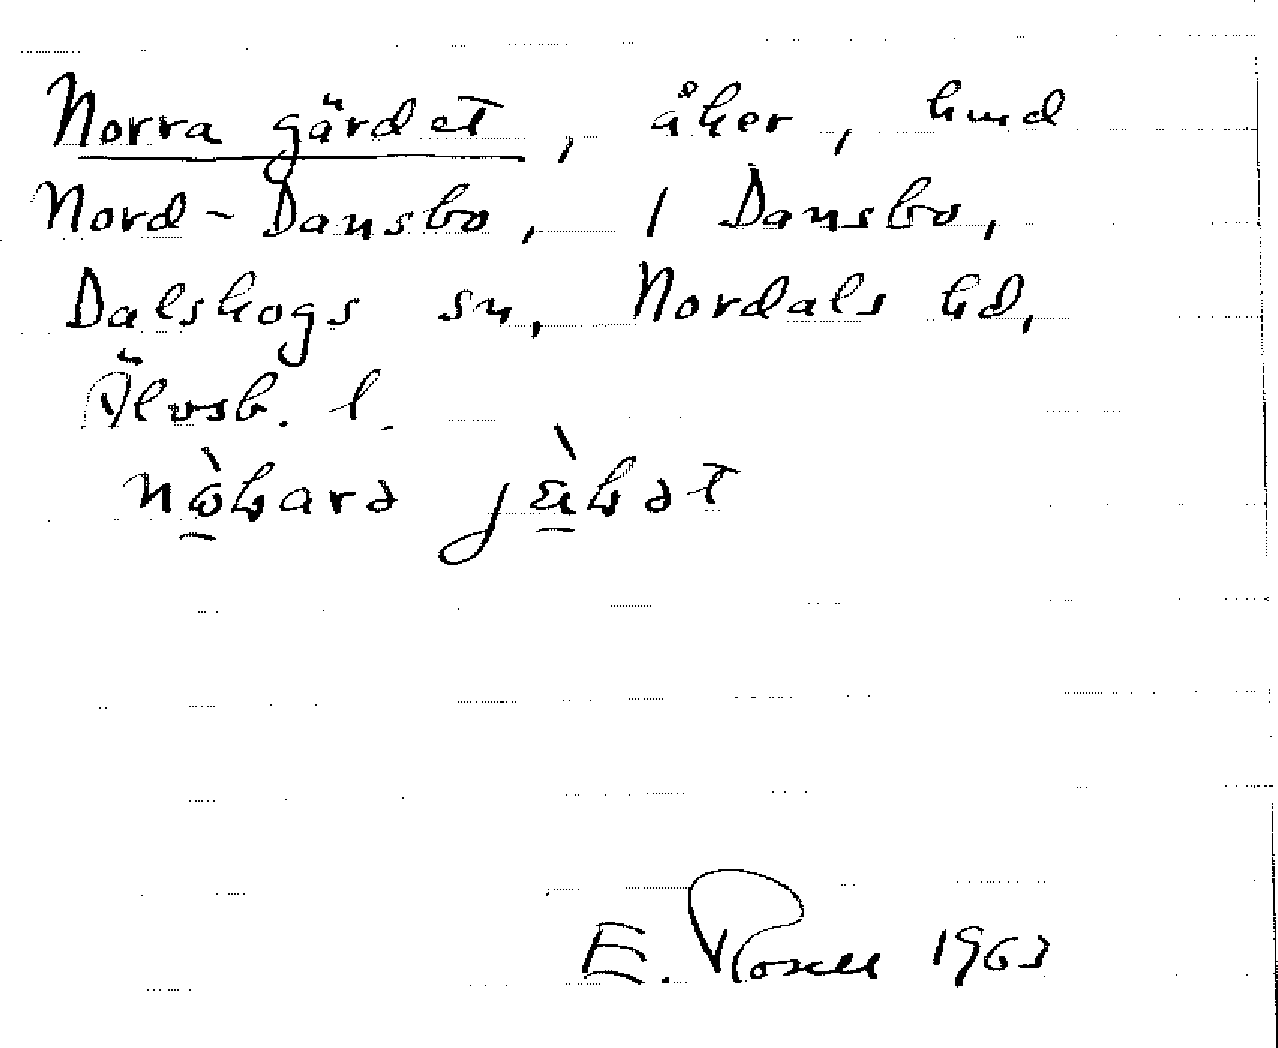 Norra gärdet, åker, hmd
Nord-Dansbo, 1 Dansbo,
Dalskogs sn, Nordals hd,
Älvsb. l.
E. Rosell 1963